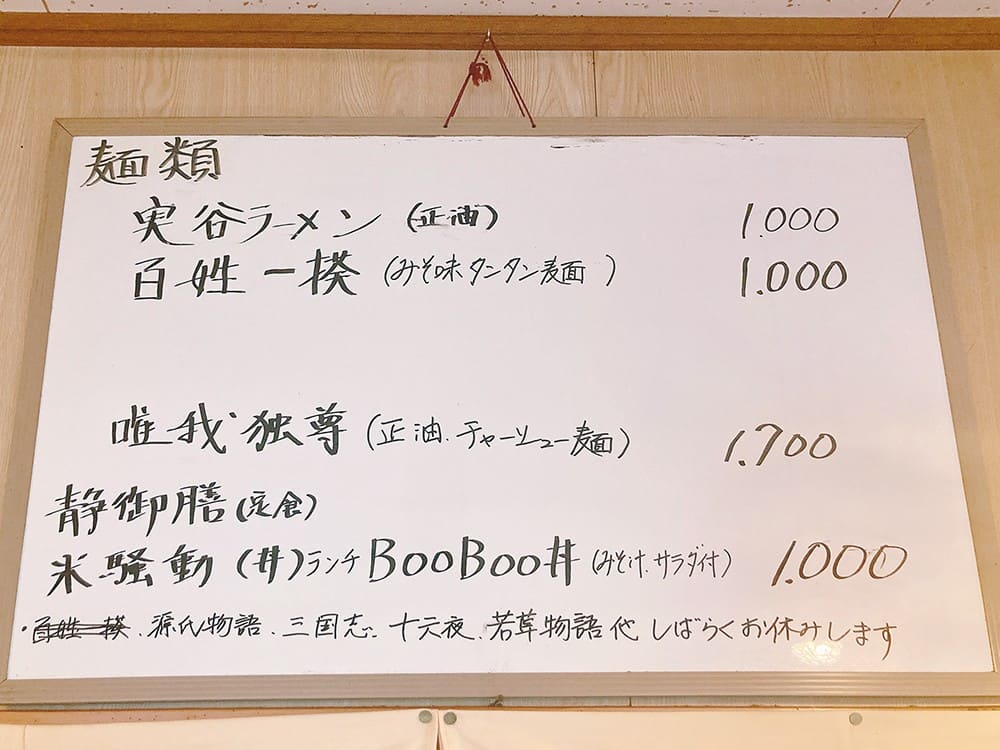 麺類
実谷ラーメン (正油) 1.000
百姓一揆 (みそ味タンタン麺) 1.000
唯我独尊 (正油、チャーシュー麺) 1.700
静御膳 (定食)
米騒動 (丼) ランチ BooBoo丼 (みそ汁、サラダ付) 1.000
・百姓一揆、源氏物語、三国志、十六夜、若草物語他しばらくお休みします